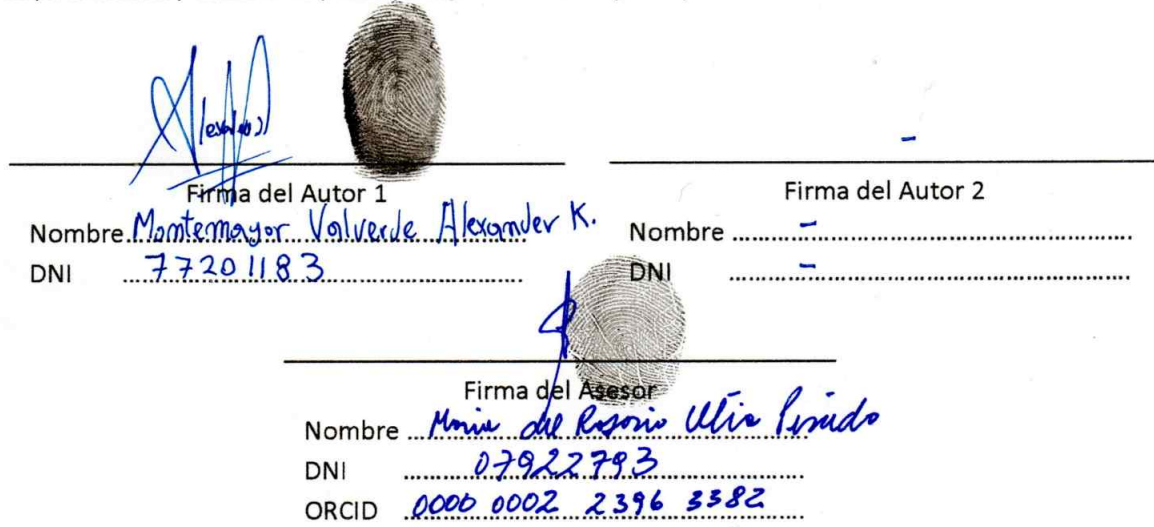 Firma del Autor 1
Nombre Montemayor Valverde Alexander K.
DNI 77201183
-
Firma del Autor 2
Nombre -
DNI -
Firma del Asesor
Nombre Maria del Rosario Utia
DNI 07922793
ORCID 0000 0002 2396 3382